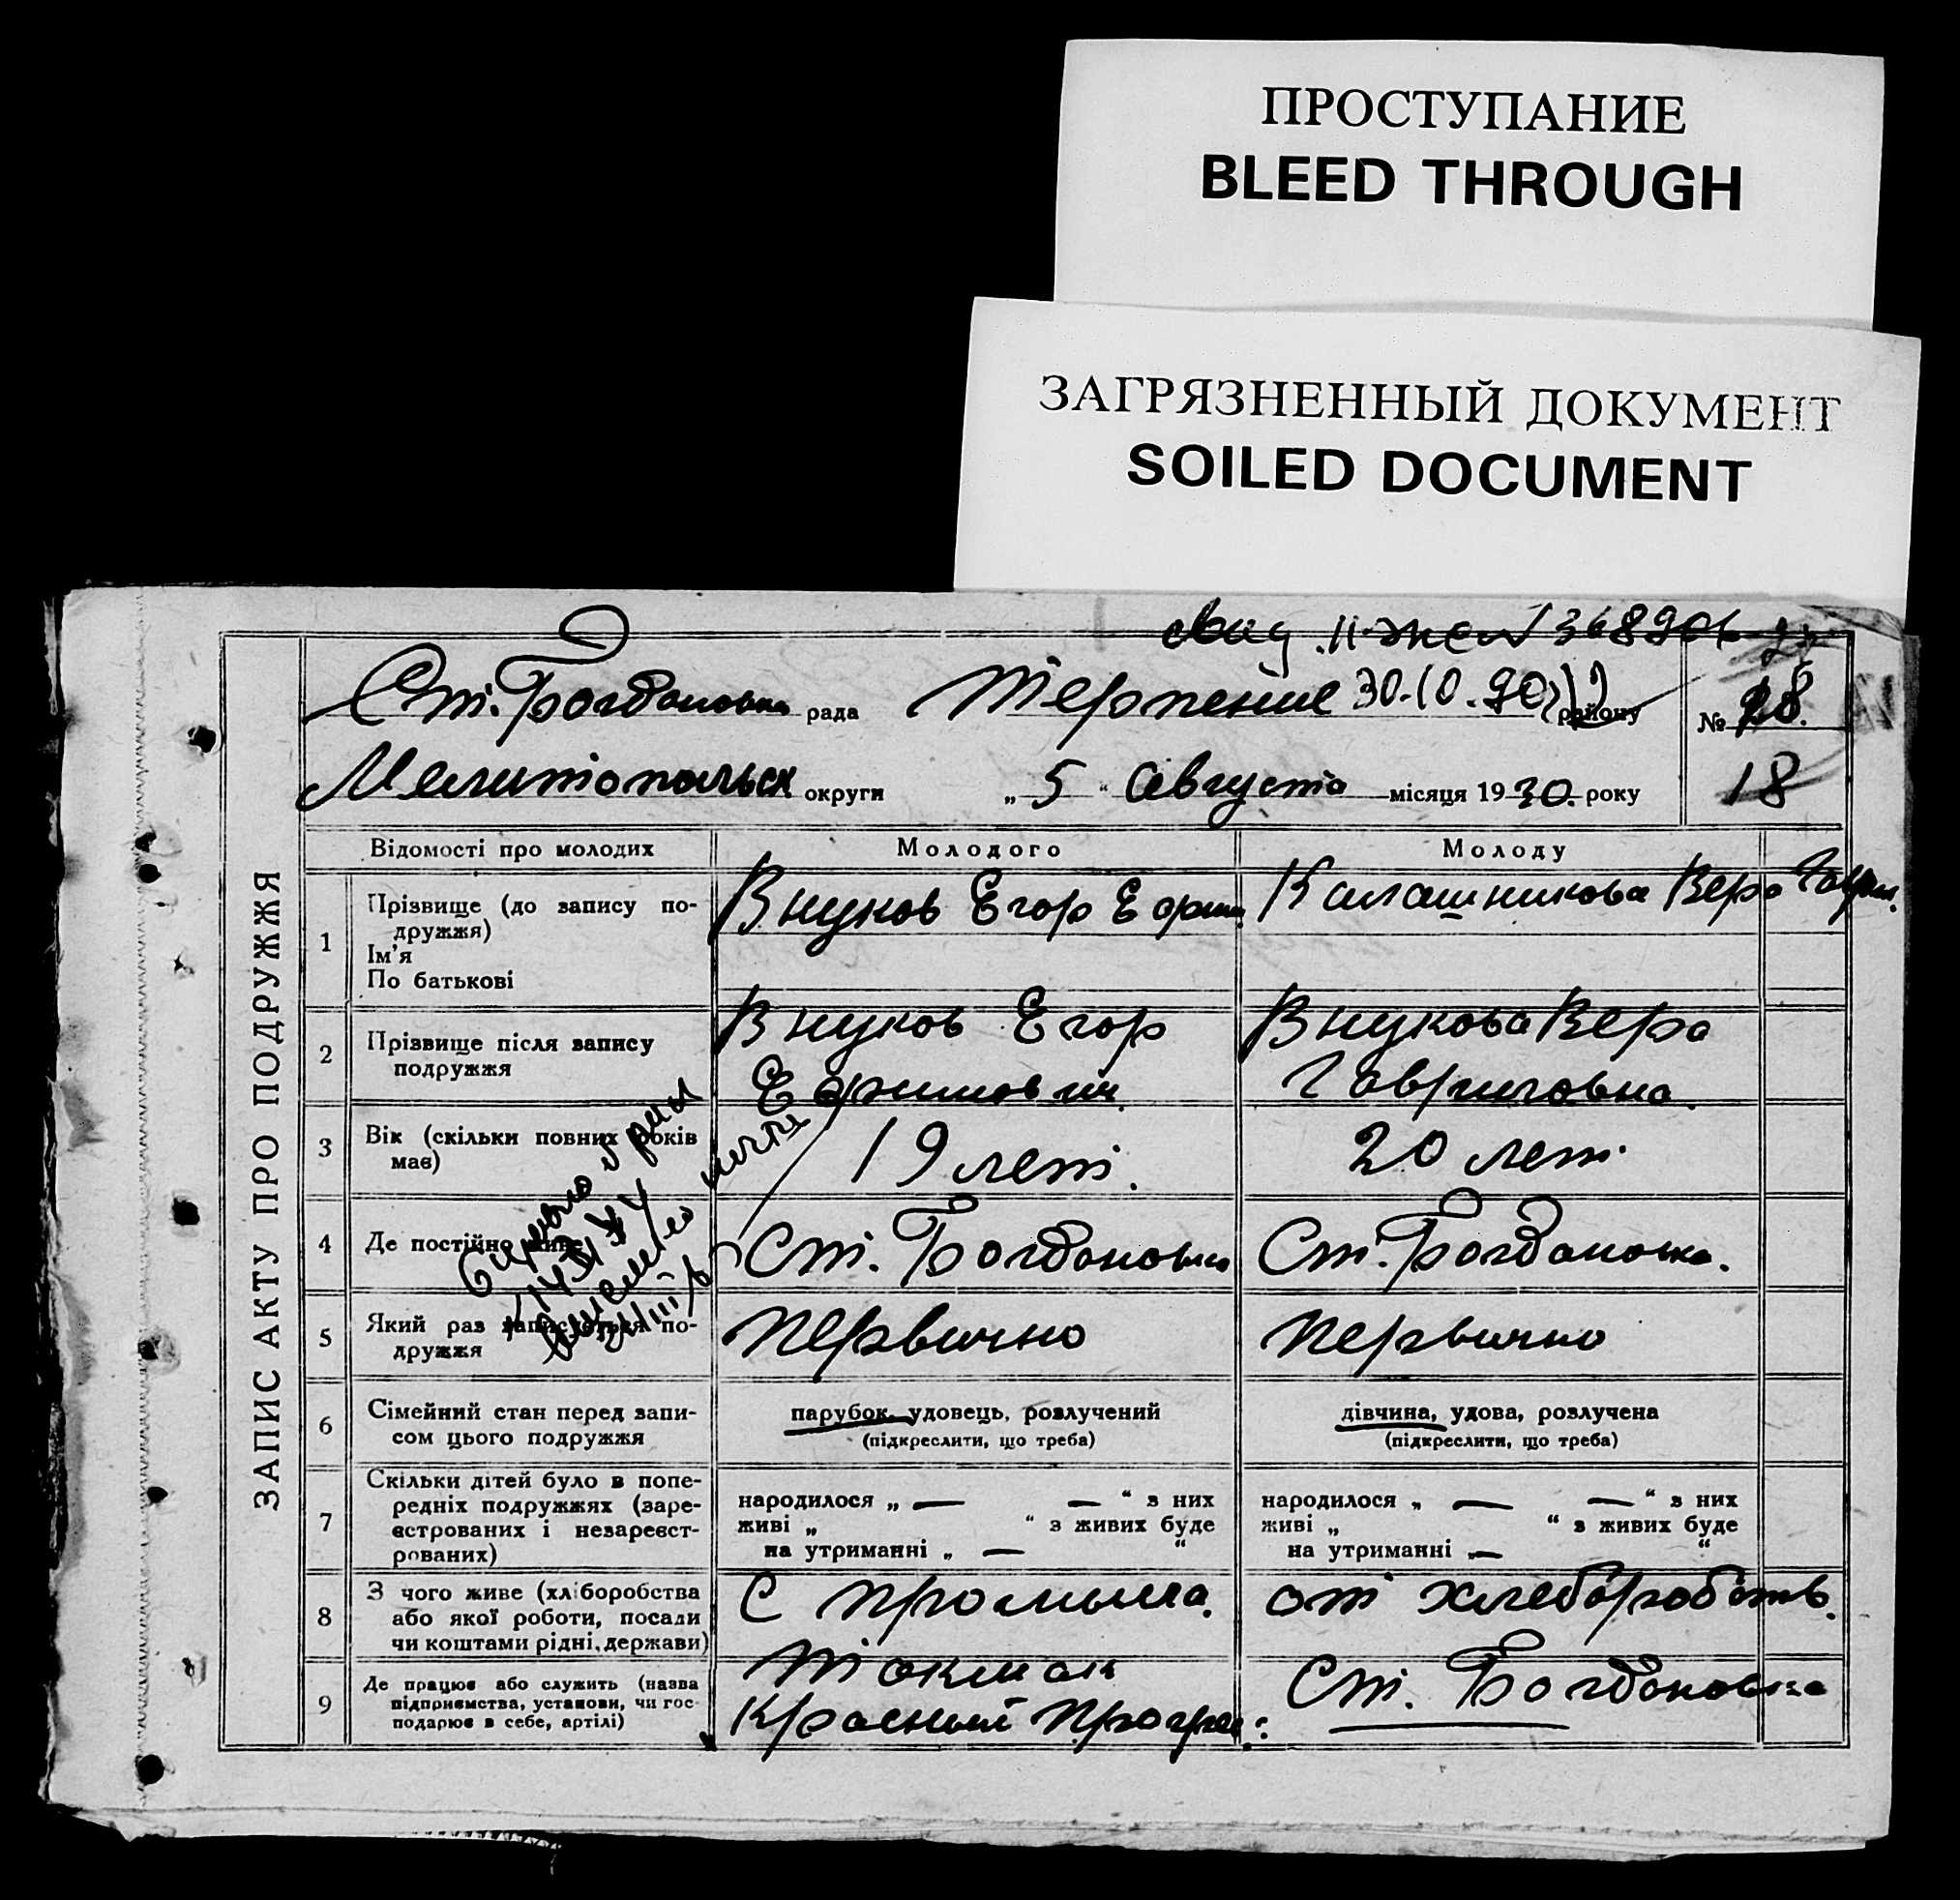 ПРОСТУПАНИЕ
BLEED THROUGH
ЗАГРЯЗНЕННЫЙ ДОКУМЕНТ
SOILED DOCUMENT
368906
Ст. Богдановка рада Терпение 30.10.90 району № 28.
Мелитопольск округи „ 5 “ августа місяця 1930. року 18
ЗАПИС АКТУ ПРО ПОДРУЖЖЯ
Відомості про молодих Молодого Молоду
1 Прізвище (до запису по-
дружжя)
Ім'я
По батькові
Внуков Егор Ефим. Калашникова Вера Гаврил.
2 Прізвище після запису
подружжя
Внуков Егор
Ефимович.
Внукова Вера
Гавриловна.
3 Вік (скільки повних років
має)
19 лет. 20 лет.
4 Де постійно живе
Ст. Богдановка Ст. Богдановка.
5 Який раз записується по-
дружжя
Первично Первично
6 Сімейний стан перед запи-
сом цього подружжя
парубок, удовець, розлучений
(підкреслити, що треба)
дівчина, удова, розлучена
(підкреслити, що треба)
7 Скільки дітей було в попе-
редніх подружжях (заре-
єстрованих і незареєст-
рованих)
народилося „ — — “ з них
живі „ “ з живих буде
на утриманні „ — “
народилося „ — — “ з них
живі „ “ з живих буде
на утриманні „— “
8 З чого живе (хліборобства
або якої роботи, посади
чи коштами рідні, держави)
С промысла. от хлеборобств.
9 Де працює або служить (назва
підприємства, установи, чи гос-
подарює в себе, артілі)
Токмак
Красный Прогрес.
Ст. Богдановка